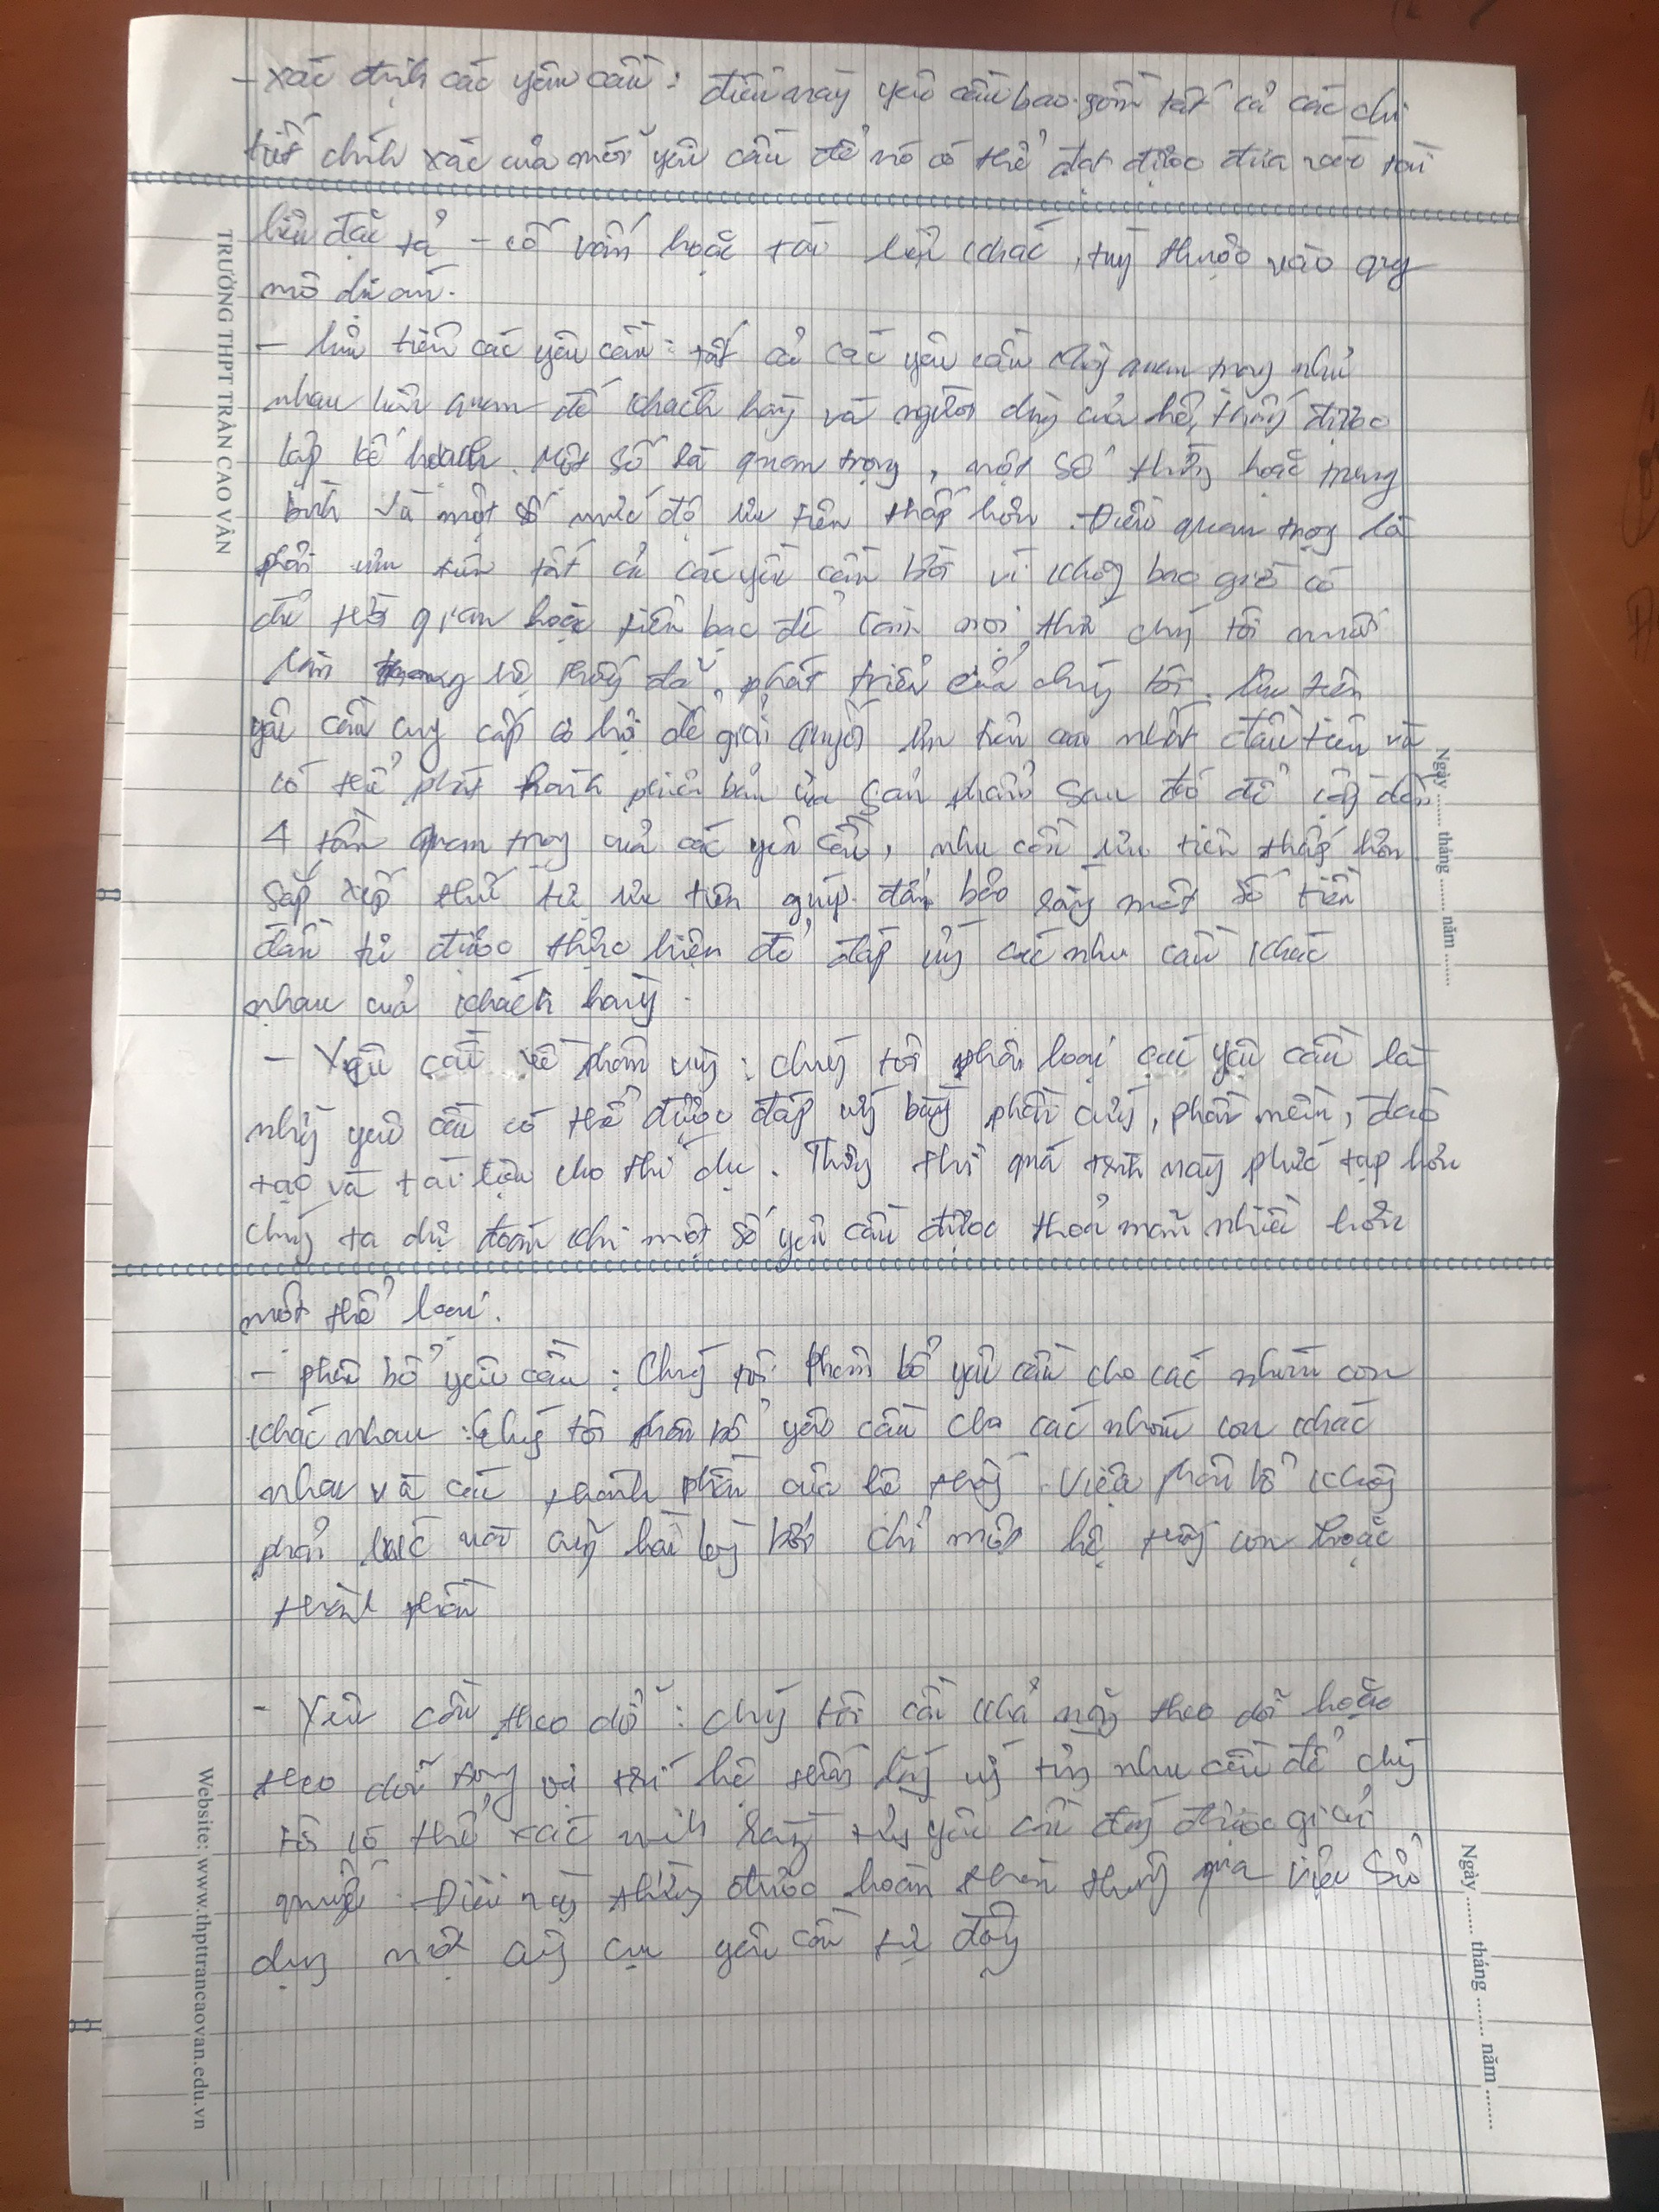 - xác định các yêu cầu : điều này yêu cầu bao gồm tất cả các chi
tiết chính xác của mỗi yêu cầu để nó có thể đạt được đưa vào tài
liệu đặc tả - cố vấn hoặc tài liệu khác, tuỳ thuộc vào quy
mô dự án.
- Ưu tiên các yêu cầu : tất cả các yêu cầu không quan trọng như
nhau liên quan đế khách hàng và người dùng của hệ thống được
lập kế hoạch. Một số là quan trọng, một số thường hoặc trung
bình và một số mức độ ưu tiên thấp hơn. Điều quan trọng là
phải ưu tiên tất cả các yêu cầu bởi vì không bao giờ có
đủ thời gian hoặc tiền bạc để làm mọi thứ chúng tôi muốn
làm trong hệ thống đã phát triển của chúng tôi. Ưu tiên
yêu cầu cung cấp cơ hội để giải quyết ưu tiên cao nhất đầu tiên và
có thể phát hành phiên bản của sản phẩm sau đó để cập đến
tầm quan trọng của các yêu cầu, nhu cầu ưu tiên thấp hơn
sắp xếp thứ tự ưu tiên giúp đảm bảo rằng một số tiền
đầu tư được thực hiện để đáp ứng các nhu cầu khác
nhau của khách hàng.
- Yêu cầu về phạm vi : chúng tôi phân loại các yêu cầu là
những yêu cầu có thể được đáp ứng bằng phần cứng, phần mềm, đào
tạo và tài liệu cho thí dụ. Thông thường quá trình này phức tạp hơn
chúng ta dự đoán khi một số yêu cầu được thoả mãn nhiều hơn
một thể loại.
- phân bổ yêu cầu : Chúng tôi phân bổ yêu cầu cho các nhóm con
khác nhau : chúng tôi phân bổ yêu cầu cho các nhóm con khác
nhau và các thành phần của hệ thống. Việc phân bổ không
phải lúc nào cũng hài lòng bởi chỉ một hệ thống con hoặc
thành phần
- Yêu cầu theo dõi : chúng tôi cần khả năng theo dõi hoặc
theo dõi trong và hệ thống từng nhu cầu để chúng
tôi có thể xác minh rằng từng yêu cầu đang được giải
quyết. Điều này thường được hoàn thành thông qua việc sử
dụng một công cụ yêu cầu tự động
TRƯỜNG THPT TRẦN CAO VÂN
Ngày ........ tháng ........ năm ........
Website: www.thpttrancaovan.edu.vn
Ngày ........ tháng ........ năm ........